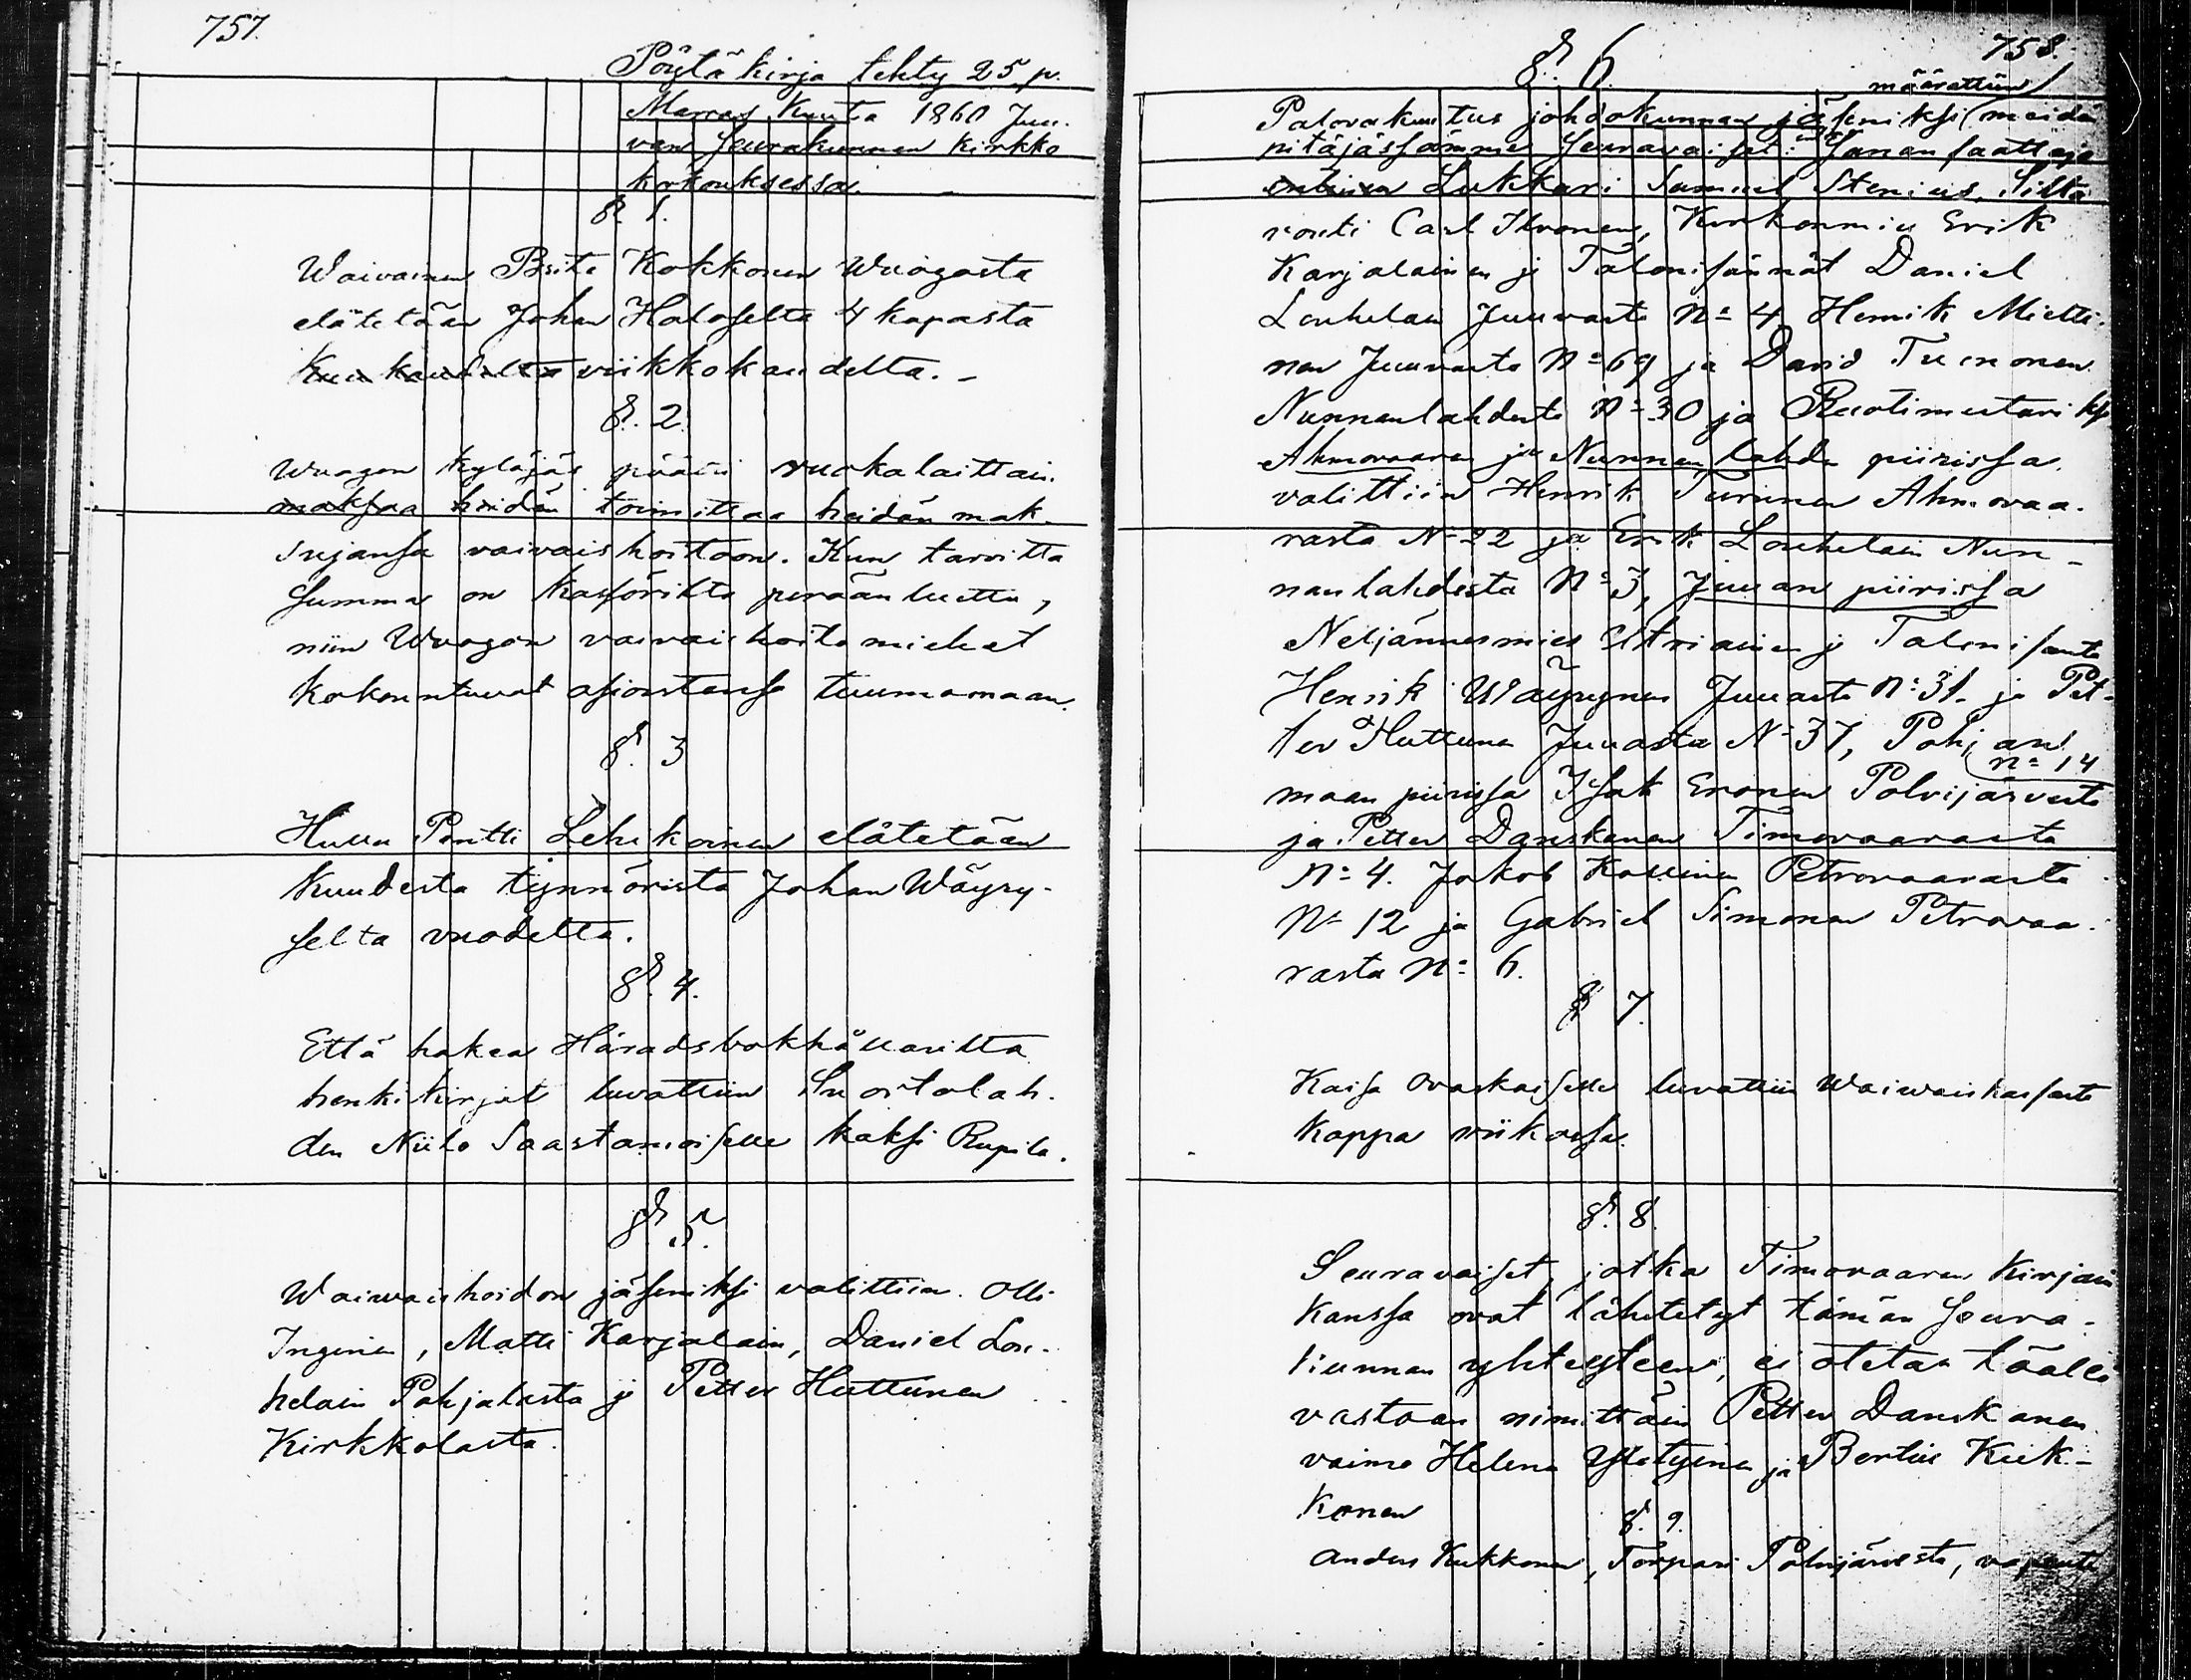 757.
Pöytäkirja tehty 25 p.
Marras Kuuta 1860 Juu-
van Seurakunnan Kirkko
kokouksessa.
§. 1.
Waivainen Brita Kokkonen Wuogosta
elätetään Johan Holoselta 4 kapasta
Kuukaudelta viikkokaudelta. -
§. 2.
Wuogon kyläjäs päätti ruokalaittain
maksaa heidän toimittaa heidän mak-
sujansa vaivaishoitoon. Kun tarvitta
summa on kassörilta perään luettu,
niin Wuogon vaivaishoito miehet
kokountuvat asioistansa tuumomaan.
§. 3
Hullu Pentti Lehikoinen elätetään
Kuudesta tynnöristä Johan Wäyry-
seltä vuodelta.
§. 4.
Että hakea Häradsbokhållarilta
henkikirjat luvattiin Suoitolah-
den Niilo Saastamoiselle kaksi Rupila.
§. 5.
Waiwaishoidon jäseniksi valittiin Olli
Inginen, Matti Karjalain, Daniel Lou-
helain Pohjalasta ja Petter Huttunen
Kirkkolasta.
758.
§. 6.
määrättiin
Palovakuutus johdokunnan jäseniksi (meidän
pitäjässämme seuravaiset: Sanansaattaja
Lukkari Samuel Stenius, Silta
vouti Carl Ilvonen, Kirkonmies Erik
Karjalainen ja Talonisännät Daniel
Louhelain Juuvasta No 4 Henrik Mietti-
nen Juuvasta No 69 ja David Tuononen
Nunnanlahdesta No 30 ja Ruotimestariksi
Ahmovaaran ja Nunnanlahden piirissä
valittiin Henrik Turunen Ahmovaa-
rasta No 22 ja Erik Louhelain Nun-
nanlahdesta No 3, Juuan piirissä
Neljännesmies Utriainen ja Talonisäntä
Henrik Wäyrynen Juuasta No 31. ja Pet-
ter Huttunen Juuasta No 37, Pohjan
No 14
maan piirissä Isak Eronen Polvijärvestä
ja Petter Danskanen Timovaarasta
No 4. Jakob Kollinen Petrovaarasta
No 12 ja Gabriel Simonen Petrovaa-
rasta No 6.
§ 7.
Kaisa Ovaskaiselle luvattiin Waiwaiskassasta
Kappa viikossa.
§. 8.
Seuravaiset, jotka Timovaaran Kirjain
Kanssa ovat lähetetyt tämän Seura-
kunnan yhteyteen, ei oteta täällä
vastaan nimittäin Petter Danskanen
vaimo Helena Yletyinen ja Bertie Kuk-
konen
§. 9.
Anders Kukkonen, Torpari Polvijärvestä, vapautet